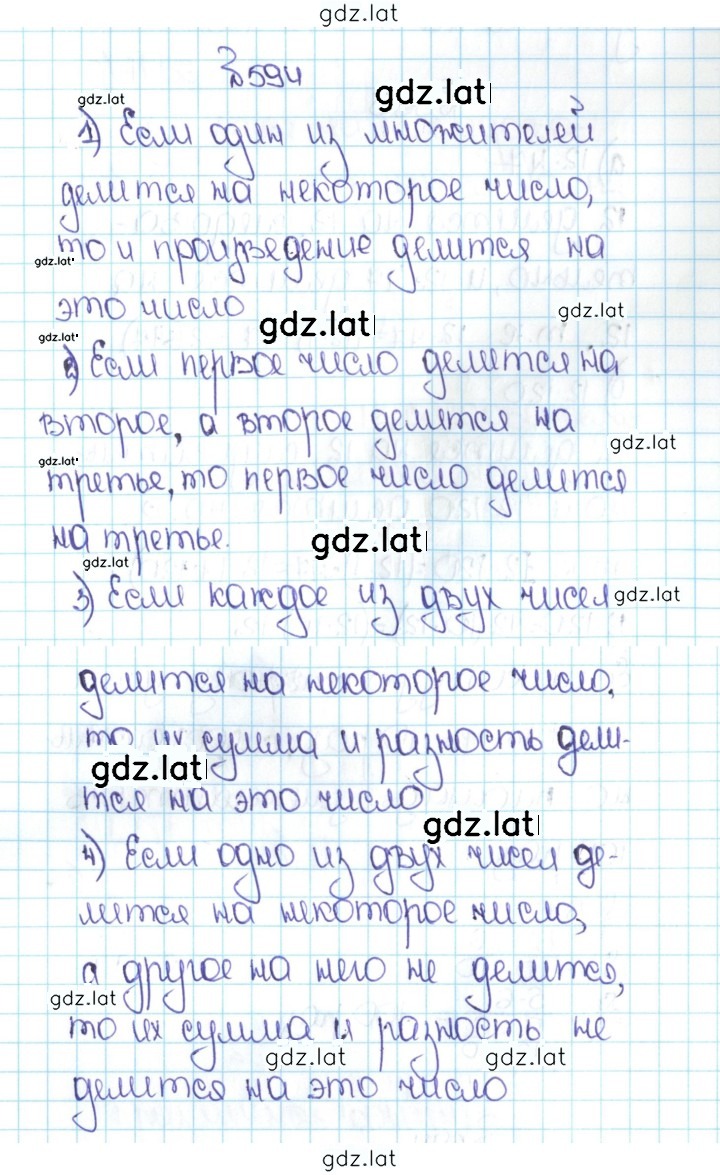 gdz.lat
№ 594
gdz.lat
gdz.lat
1) Если один из множителей
делится на некоторое число,
то и произведение делится на
gdz.lat
это число
gdz.lat
gdz.lat
gdz.lat
2) Если первое число делится на
второе, а второе делится на
gdz.lat
gdz.lat
третье, то первое число делится
на третье.
gdz.lat
gdz.lat
3) Если каждое из двух чисел
gdz.lat
делится на некоторое число,
то их сумма и разность дели-
gdz.lat
тся на это число
gdz.lat
4) Если одно из двух чисел де-
лится на некоторое число,
а другое на него не делится,
gdz.lat
то их сумма и разность не
gdz.lat
gdz.lat
делится на это число
gdz.lat